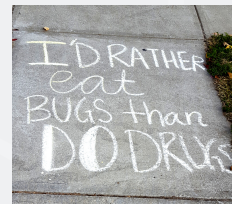 I'D RATHER
eat
BUGS than
DO DRUGS